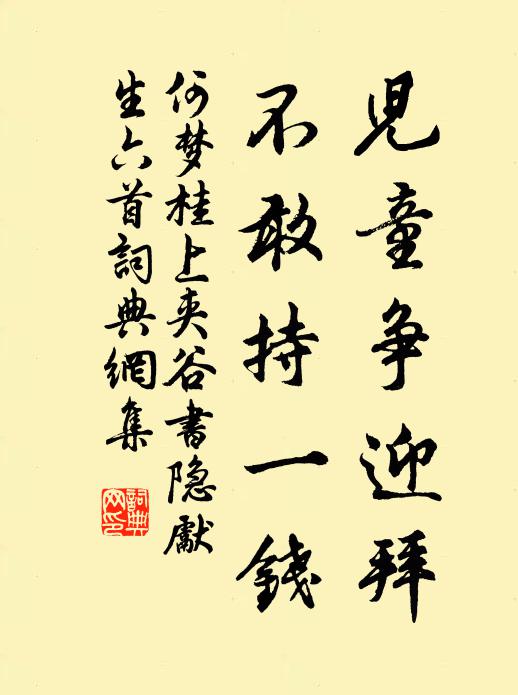 兒童争迎拜
不敢持一錢
何梦桂上夾谷書隐獻
生六首詞典網集
詞典
网印